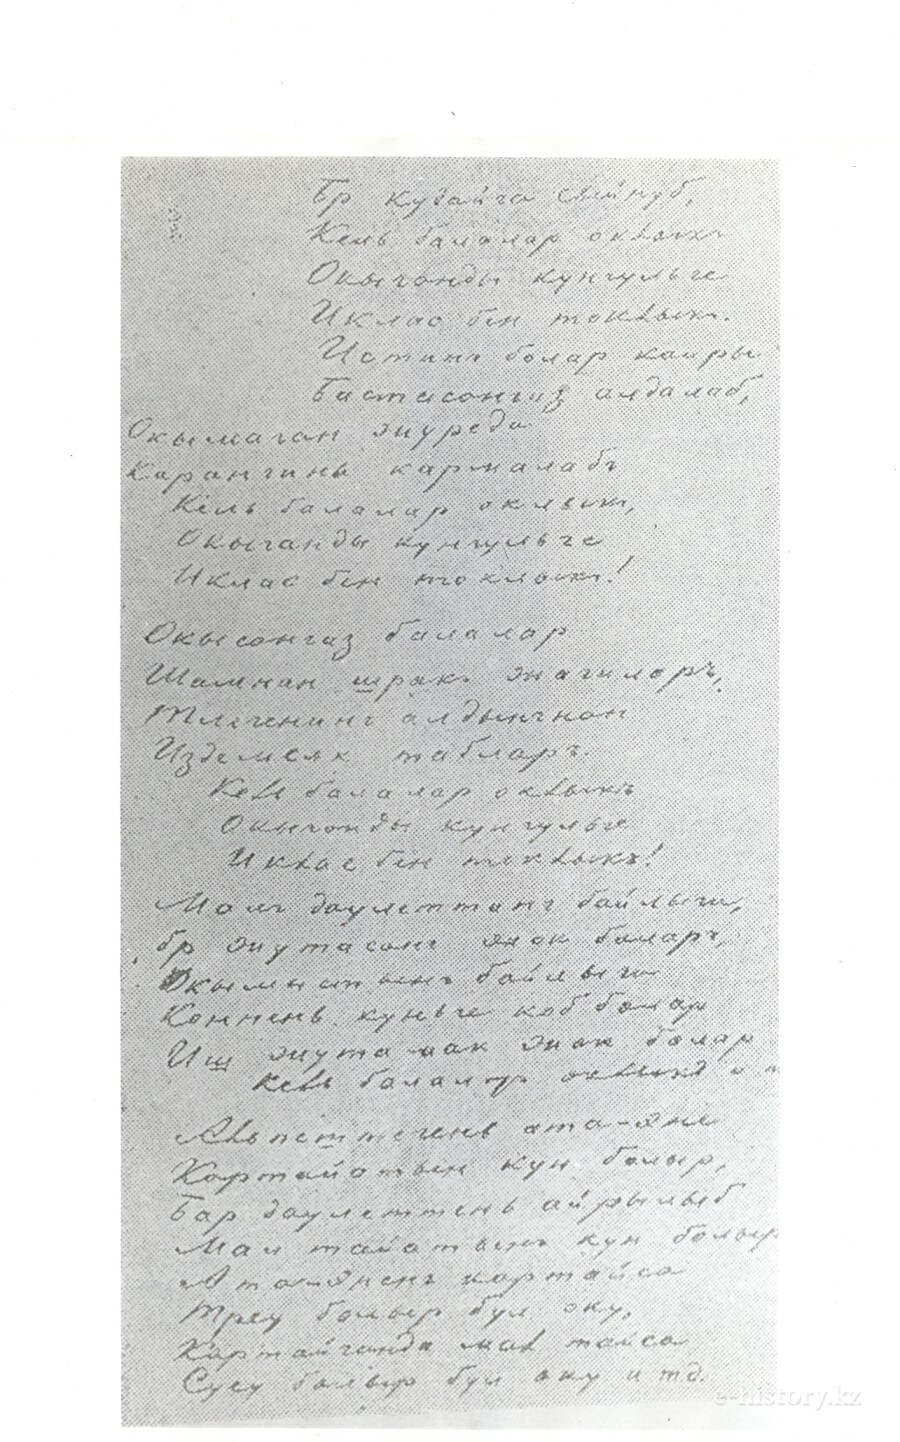 Бр кудайга сыйнуб,
Кель балалар оклыкъ
Окыганды кунгульге
Иклас бiн токлык.
Истинг болар кайры
Бастасонгиз алдалаб,
Окымаган журеда
Карангинь кармалабъ
Кель балалар оклык,
Окыганды кунгульге
Иклас бiн токлык!
Окысонгиз балалар
Шамнан шракъ жагиларъ,
Тлегенинг алдынгнан
Издемсяк табларъ.
Кель балалар оклыкъ
Окыганды кунгульге
Иклас бiн токлыкъ!
Малъ даулеттинг байлыги,
бр жутасонг жок боларъ,
Окымыстынъ байлыги
Коннень куньге коб болар
Иш жутамак жок болар
Кель балалар оклыкъ и
Альпештегень ата-яне
Картайатын кун болыр,
Бар даулеттень айрылыб
Мал тайатынъ кун болыр
Ата-Яненъ картайса
Треу болыр бул оку,
Картайганда мал тайса
Суеу болыр бул оку итд.
e-history.kz